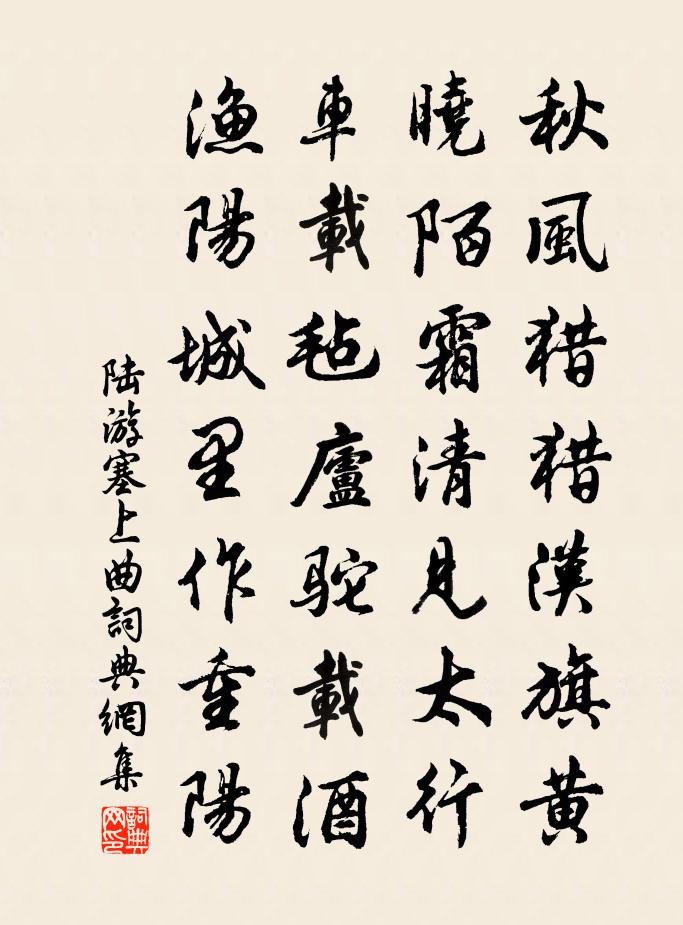 秋風猎猎漢旗黄
曉陌霜清見太行
車載毡廬駝載酒
漁陽城里作重陽
陆游塞上曲詞典網集
詞典网印